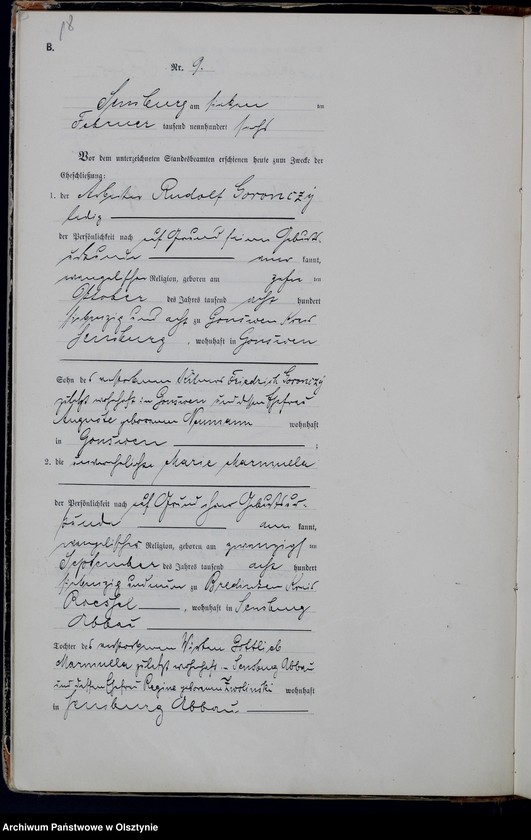 18
B.
Nr. 9.
Sensburg am sieben ten
Februar tausend neunhundert sechs
Vor dem unterzeichneten Standesbeamten erschienen heute zum Zwecke der
Eheschließung:
1. der Arbeiter Rudolf Goronczy
ledig
der Persönlichkeit nach auf Grund seiner Geburts-
urkunde aner kannt,
evangelischer Religion, geboren am zehn ten
Oktober des Jahres tausend acht hundert
siebenzig und acht zu Gonswen Kreis
Sensburg, wohnhaft in Gonswen
Sohn des verstorbenen Friedrich Goronczy
zuletzt wohnhaft in Gonswen und dessen Ehefrau
Auguste geborenen Neumann wohnhaft
in Gonswen ;
2. die unverehelichte Marie Marmulla
der Persönlichkeit nach auf Grund ihrer Geburtsur-
kunde aner kannt,
evangelischer Religion, geboren am zwanzigsten
September des Jahres tausend acht hundert
siebenzig und neun zu Bredinken Kreis
Roessel, wohnhaft in Sensburg
Abbau
Tochter des verstorbenen Wirten Gottlieb
Marmulla zuletzt wohnhaft in Sensburg Abbau
und dessen Ehefrau Regine geborenen Zwolinski wohnhaft
in Sensburg Abbau
Archiwum Państwowe w Olsztynie